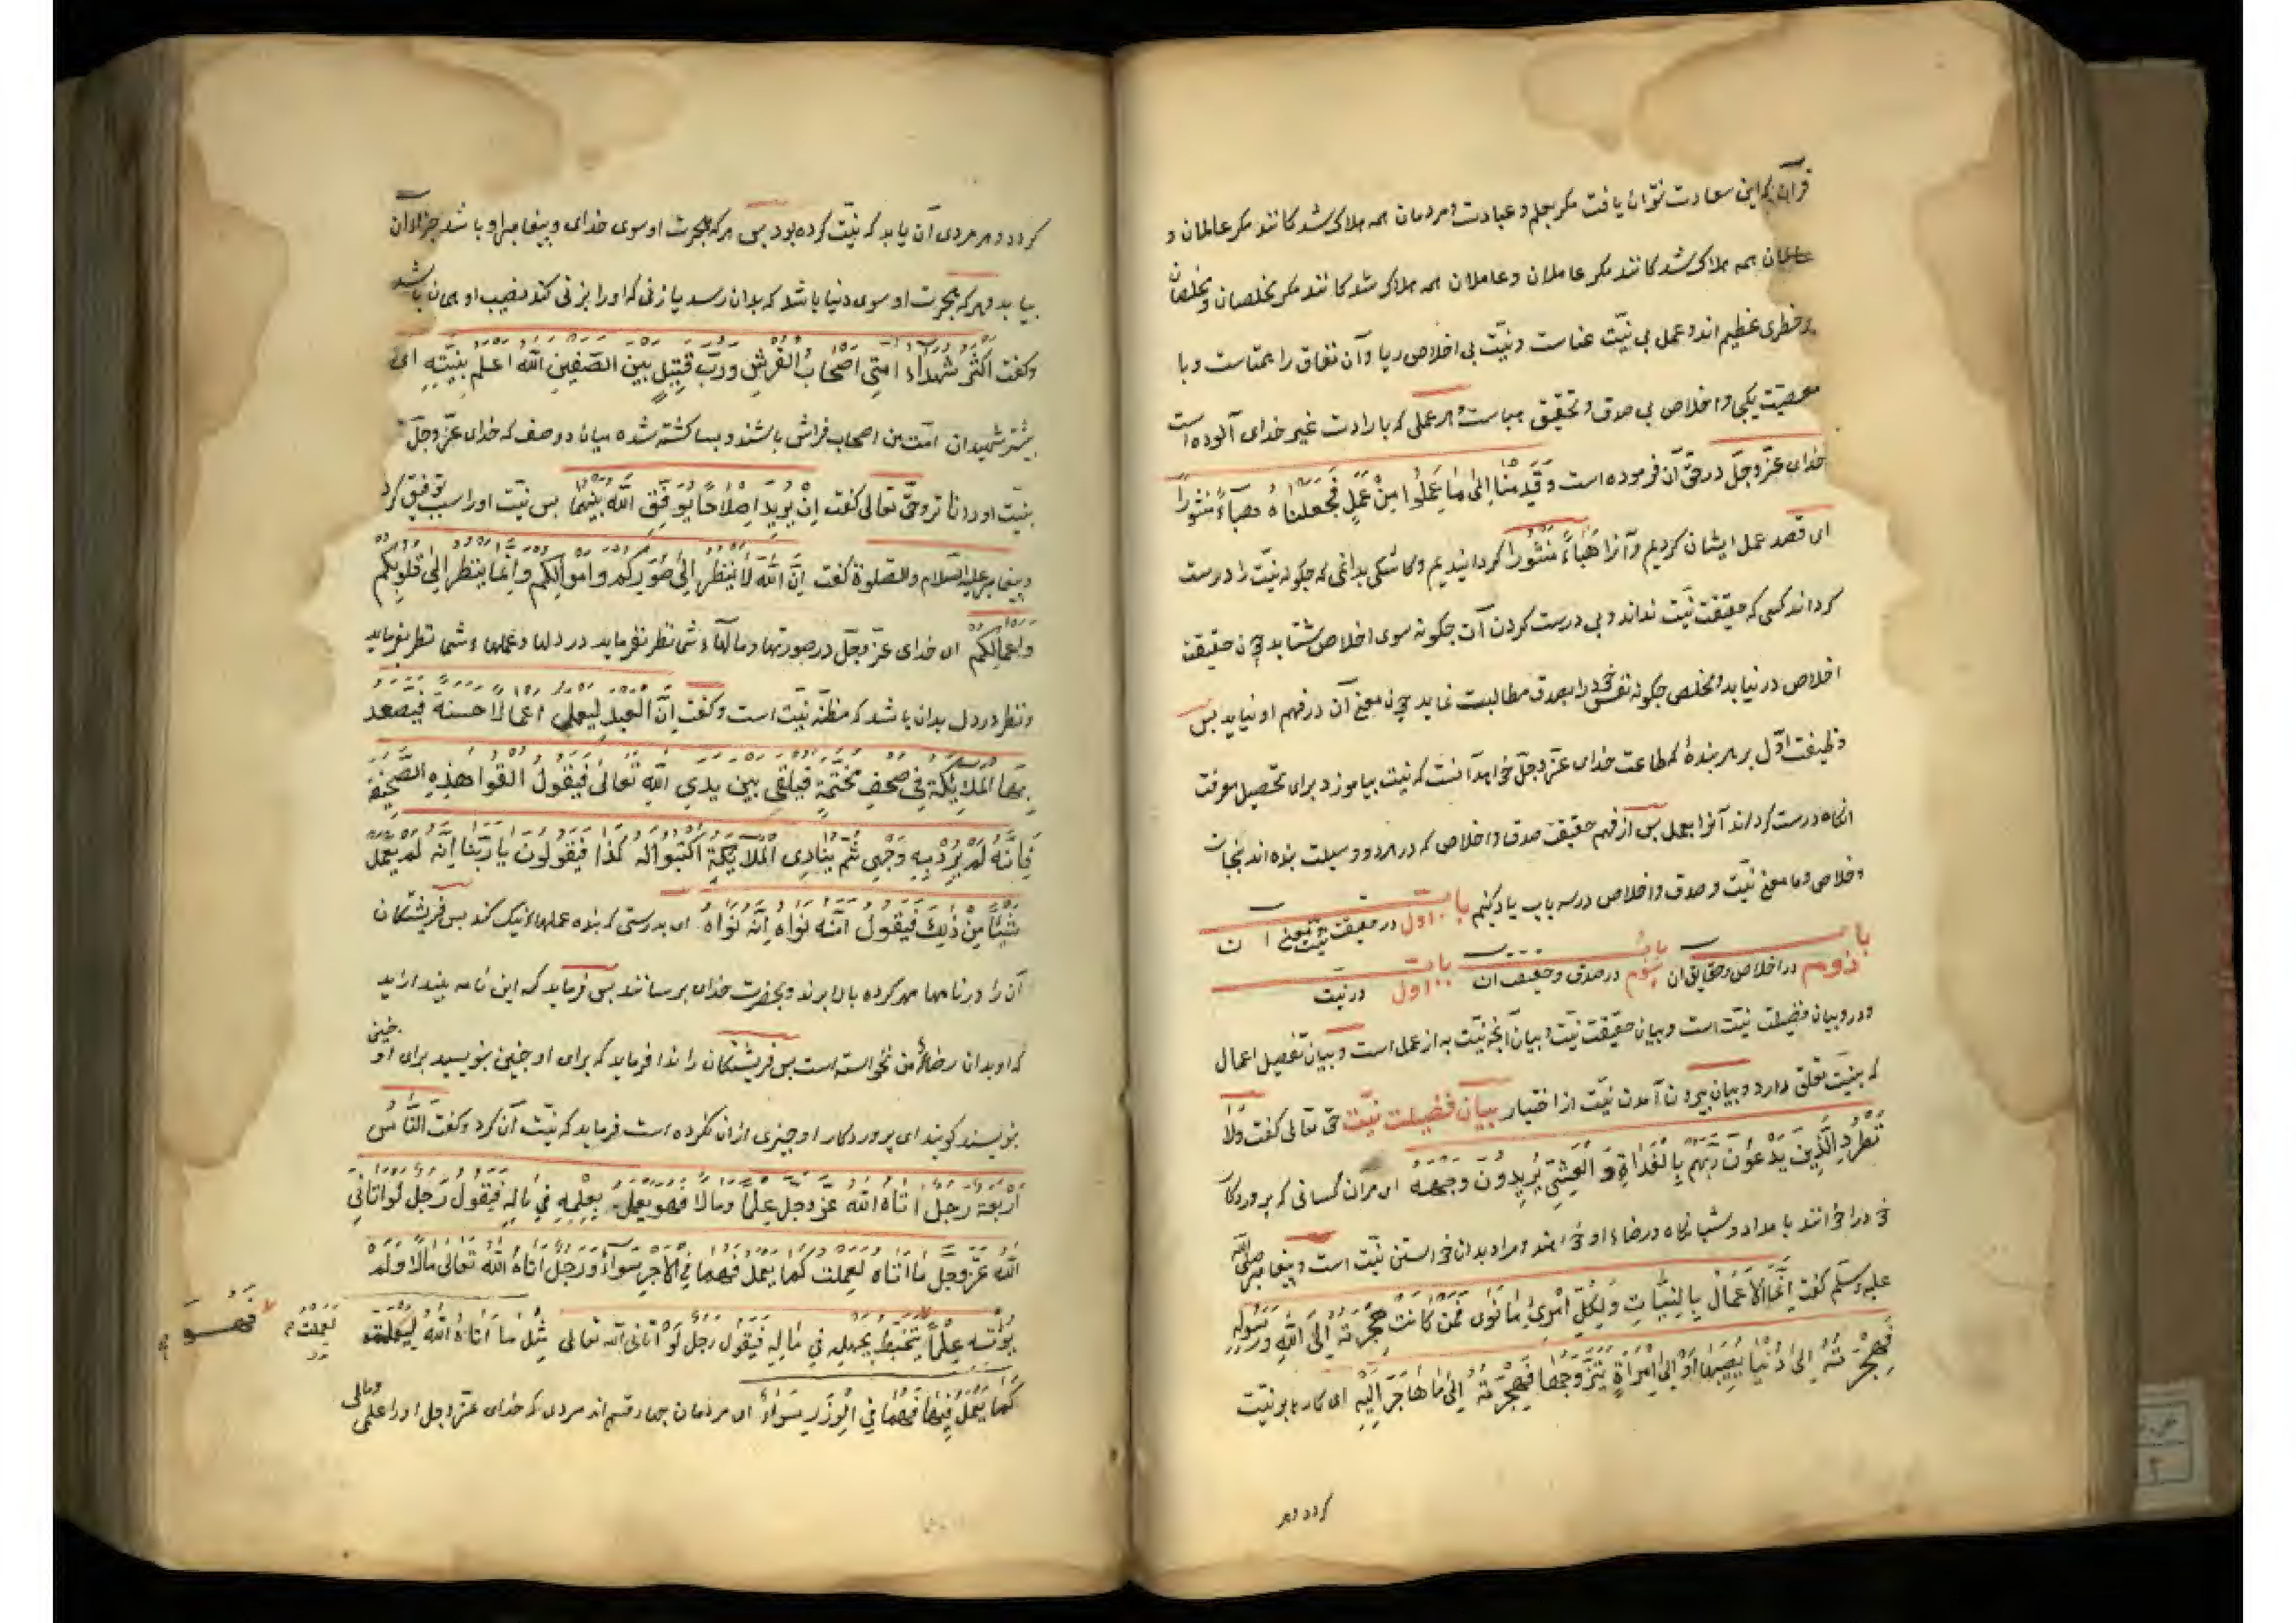 قرآن کم این سعادت نتوان یافت مکر بعلم و عبادت و مردمان همه هلاک شد کانند مکر عالمان و
عالمان همه هلاک شد کانند مکر عاملان و عاملان همه هلاک شد کانند مکر مخلصان و مخلصان
در خطری عظیم اند و عمل بی نیّت عناست و نیّت بی اخلاص ریا و آن نفاق را همتاست و با
معصیت یکی و اخلاص بی صدق و تحقیق هباست و هر عملی که با رادت غیر خدای آلوده است
خدای عزّ وجلّ در حقّ آن فرموده است وَقَدِمْنَا اِلٰی مَا عَمِلُوا مِنْ عَمَلٍ فَجَعَلْنَاهُ هَبَآءً مَنْثُورًا
ای قصد عمل ایشان کردیم و آنرا هَبَاءً مَنْثُورًا کردانیدیم و کاشکی بدانمی که جکونه نیّت را درست
کرداند کسی که حقیقت نیّت نداند و بی درست کردن آن جکونه سوی اخلاص شتابد چون حقیقت
اخلاص در نیابد و مخلص جکونه نفس خود را بصدق مطالبت نماید چون معنی آن در فهم او نیاید بس
وظیفت اوّل بر هر بندۀ که طاعت خدای عزّ وجلّ خواهد آنست که نیّت بیاموزد برای تحصیل معرفت
انکاه درست کرداند آنرا بعمل بس از فهم حقیقت صدق و اخلاص که در هر دو وسیلت بنده اند بنجات
و خلاص و ما معنی نیّت و صدق و اخلاص در سه باب یاد کنیم باب اول در حقیقت نیّت و معنی ان
باب دوم در اخلاص و حقایق ان باب سوم در صدق و حقیقت ان باب اول در نیت
و درو بیان فضیلت نیّت است و بیان حقیقت نیّت و بیان آنجه نیّت به از عمل است و بیان تفصیل اعمال
که بنیّت تعلق دارد و بیان بیرون آمدن نیّت از اختیار بیان فضیلت نیّت حق تعالی کفت وَلَا
تَطْرُدِ الَّذِینَ یَدْعُونَ رَبَّهُمْ بِالْغَدَاةِ وَ الْعَشِیِّ یُرِیدُونَ وَجْهَهُ ای مران کسانی که بروردکار
خود را خوانند بامداد و شبانکاه و رضاء او خواهند و مراد بدان خواستن نیّت است و بیغامبر صلی الله
علیه وسلم کفت اِنَّمَا الْاَعْمَالُ بِالنِّیَّاتِ وَلِکُلِّ امْرِئٍ مَا نَوَی فَمَنْ کَانَتْ هِجْرَتُهُ اِلَی اللهِ وَرَسُولِهِ
فَهِجْرَتُهُ اِلَی دُنْیَا یُصِیبُهَا اَوْ اِلَی امْرَاَةٍ یَتَزَوَّجُهَا فَهِجْرَتُهُ اِلَی مَا هَاجَرَ اِلَیْهِ ای کارها بو نیّت
کردد و هر
کردد و هر مردی آن یابد که نیّت کرده بود بس هر که هجرت او سوی خدای و بیغامبر او باشد جزا ان
بیابد و هر که هجرت او سوی دنیا باشد که بدان رسد یا زنی که او را بزنی کند نصیب او همان باشد
وکفت اَکْثَرُ شُهَدَاءِ اُمَّتِی اَصْحَابُ الْفُرُشِ وَرُبَّ قَتِیلٍ بَیْنَ الصَّفَّیْنِ اَللهُ اَعْلَمُ بِنِیَّتِهِ ای
بیشتر شهیدان امّت من اصحاب فراش باشند و بسا کشته شده میان دو صف که خدای عزّ وجلّ
بنیّت او داناتر و حقّ تعالی کفت اِنْ یُرِیدَا اِصْلَاحًا یُوَفِّقِ اللهُ بَیْنَهُمَا بس نیّت او را سبب توفیق کرد
و بیغامبر علیه السلام والصلوة کفت اِنَّ اللهَ لَا یَنْظُرُ اِلَی صُوَرِکُمْ وَاَمْوَالِکُمْ وَاِنَّمَا یَنْظُرُ اِلَی قُلُوبِکُمْ
وَاَعْمَالِکُمْ ای خدای عزّ وجلّ در صورتها و مالهاء شما نظر نفرماید در دلها و عملهاء شما نظر بفرماید
و نظر در دل بدان باشد که مظنّه نیّت است وکفت اِنَّ الْعَبْدَ لَیَعْمَلُ اَعْمَالًا حَسَنَةً فَیَصْعَدُ
بِهَا الْمَلَائِکَةُ فِی صُحُفٍ مُخْتَمَةٍ فَیُلْقَی بَیْنَ یَدَیِ اللهِ تَعَالَی فَیَقُولُ اَلْقُوا هٰذِهِ الصَّحِیفَةَ
فَاِنَّهُ لَمْ یُرِدْ بِهِ وَجْهِی ثُمَّ یُنَادِی الْمَلَائِکَةَ اکْتُبُوا لَهُ کَذَا فَیَقُولُونَ یَا رَبَّنَا اِنَّهُ لَمْ یَعْمَلْ
شَیْئًا مِنْ ذٰلِکَ فَیَقُولُ اِنَّهُ نَوَاهُ اِنَّهُ نَوَاهُ ای بدرستی که بنده عملهاء نیک کند بس فریشتکان
آن را در نامها مهر کرده بالا برند و بحضرت خدای برسانند بس فرماید که این نامه بیندازید
که او بدان رضاء من نخواسته است بس فریشتکان را ندا فرماید که برای او جنین بنویسید برای او جنین
بنویسید کویند ای بروردکار او جیزی ازان نکرده است فرماید که نیّت آن کرد وکفت اَلنَّاسُ
اَرْبَعَةٌ رَجُلٌ اتَاهُ اللهُ عَزَّ وَجَلَّ عِلْمًا وَمَالًا فَهُوَ یَعْمَلُ بِعِلْمِهِ فِی مَالِهِ فَیَقُولُ رَجُلٌ لَوْ اتَانِی
اللهُ عَزَّ وَجَلَّ مَا اتَاهُ لَعَمِلْتُ کَمَا یَعْمَلُ فَهُمَا فِی الْاَجْرِ سَوَآءٌ وَرَجُلٌ اتَاهُ اللهُ تَعَالَی مَالًا وَلَمْ
یُؤْتِهِ عِلْمًا یَتَخَبَّطُ بِجَهْلِهِ فِی مَالِهِ فَیَقُولُ رَجُلٌ لَوْ اتَانِی اللهُ تَعَالَی مِثْلَ مَا اتَاهُ اللهُ
لَعَمِلْتُ
فَهُوَ
کَمَا یَعْمَلُ فِیهَا فَهُمَا فِی الْوِزْرِ سَوَاءٌ ای مردمان جهار قسم اند مردی که خدای عزّ وجل او را علمی ومالی